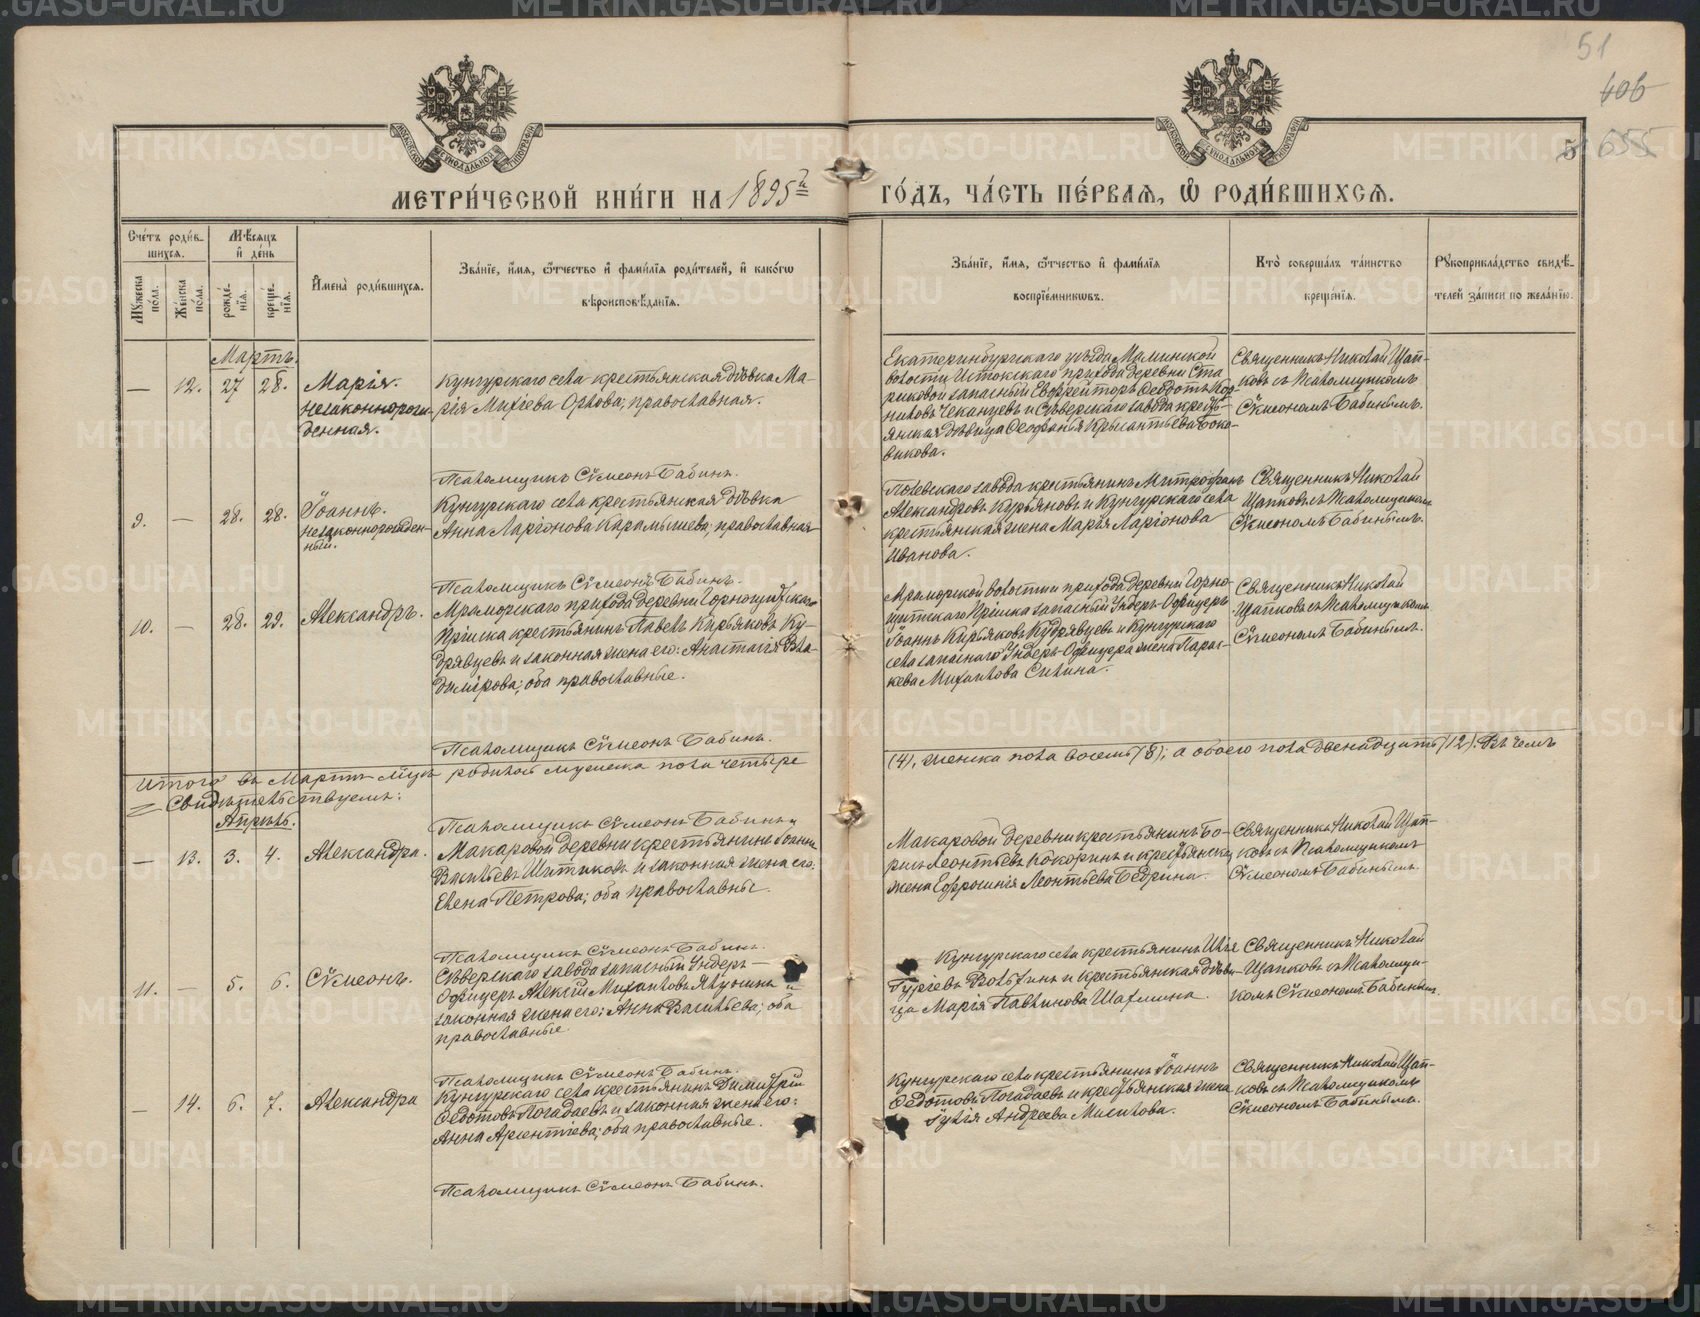 51
406
5
655
МОСКОВСКОЙ СѴНОДАЛЬНОЙ ТИПОГРАФІИ
МОСКОВСКОЙ СѴНОДАЛЬНОЙ ТИПОГРАФІИ
МЕТРИ́ЧЕСКОЙ КНИ́ГИ НА 1895й ГО́ДЪ, ЧА́СТЬ ПЕ́РВАЯ, Ѡ РОДИ́ВШИХСЯ.
Сче́тъ роди́в-
шихся.
Мꙋжеска по́ла.
Же́нска по́ла.
Мѣ́сяцъ
и҆ де́нь
рожде́-
нїя.
креще́-
нїя.
И҆мена̀ роди́вшихся.
Зва́нїе, и҆́мя, ѻ҆́тчество и҆ фами́лїя роди́телей, и҆ како́гѡ
вѣроисповѣ́данїя.
Зва́нїе, и҆́мя, ѻ҆́тчество и҆ фами́лїя
воспрїе́мникѡвъ.
Кто̀ соверша́лъ та́инство
креще́нїя.
Рꙋкоприкла́дство свидѣ́-
телей за́писи по жела́нїю.
Мартъ.
— 12. 27 28. Марія.
незаконнорож-
денная.
Кунгурскаго села крестьянская дѣвка Ма-
рія Михіева Орлова; православная.
Псаломщикъ Сѷмеонъ Бабинъ.
Екатеринбургскаго уѣзда Маминской
волости Истокскаго прихода деревни Ста
риковой запасный Ефрейторъ Ѳеодотъ
Чеканцевъ и Сѣверскаго завода кресть-
янская дѣвица Ѳеофанія Крысантьева Боко-
викова.
Священникъ Николай Цап-
ковъ съ Псаломщикомъ
Сѷмеономъ Бабинымъ.
9. — 28. 28. Іоаннъ.
незаконнорожден-
ный.
Кунгурскаго села крестьянская дѣвка
Анна Ларіонова Карамышева; православная
Псаломщикъ Сѷмеонъ Бабинъ.
Полевскаго завода крестьянинъ Митрофанъ
Александровъ Курьяновъ и Кунгурскаго села
крестьянская жена Марія Ларіонова
Иванова.
Священникъ Николай
Цапковъ съ Псаломщикомъ
Сѷмеономъ Бабинымъ.
10. — 28. 29. Александръ.
Мраморскаго прихода деревни Горнощитскаго
Пріиска крестьянинъ Павелъ Кирьяковъ Ку-
дрявцевъ и законная жена его: Анастасія Вла-
димірова; оба православные.
Псаломщикъ Сѷмеонъ Бабинъ.
Мраморской волости и прихода деревни Горно-
щитскаго Пріиска запасный Ундеръ-Офицеръ
Іоаннъ Кирьяковъ Кудрявцевъ и Кунгурскаго
села запаснаго Ундеръ-Офицера жена Парас-
кева Михайлова Силина.
Священникъ Николай
Цапковъ съ Псаломщикомъ
Сѷмеономъ Бабинымъ.
Итого въ Мартѣ м҃цѣ родилось мужеска пола четыре (4), женска пола восемь (8); а обоего пола двенадцать (12). Въ чемъ
= Свидѣтельствуемъ:
Псаломщикъ Сѷмеонъ Бабинъ
Апрѣль.
— 13. 3. 4. Александра.
Макаровой деревни крестьянинъ Іоаннъ
Васильевъ Шитиковъ и законная жена его:
Елена Петрова; оба православны.
Псаломщикъ Сѷмеонъ Бабинъ.
Макаровой деревни крестьянинъ Бо-
рисъ Леонтьевъ Кокоринъ и крестьянская
жена Ефросинія Леонтьева Бедрина.
Священникъ Николай Цап-
ковъ съ Псаломщикомъ
Сѷмеономъ Бабинымъ.
11. — 5. 6. Сѷмеонъ.
Сѣверскаго завода запасный Ундеръ-
Офицеръ Алексій Михайловъ Япунинъ и
законная жена его: Анна Васильева; оба
православные.
Псаломщикъ Сѷмеонъ Бабинъ.
Кунгурскаго села крестьянинъ Илія
Гуріевъ и крестьянская дѣви-
ца Марія Павлинова Шахмина.
Священникъ Николай
Цапковъ съ Псаломщи-
комъ Сѷмеономъ Бабинымъ.
— 14. 6. 7. Александра
Кунгурскаго села крестьянинъ Димитрій
Ѳедотовъ Погадаевъ и законная жена его:
Анна Арсентіева; оба православные.
Псаломщикъ Сѷмеонъ Бабинъ.
Кунгурскаго села крестьянинъ Іоаннъ
Ѳедотовъ Погадаевъ и крестьянская жена
Іулія Андреева Масилова.
Священникъ Николай Цап-
ковъ съ Псаломщикомъ
Сѷмеономъ Бабинымъ.
METRIKI.GASO-URAL.RU